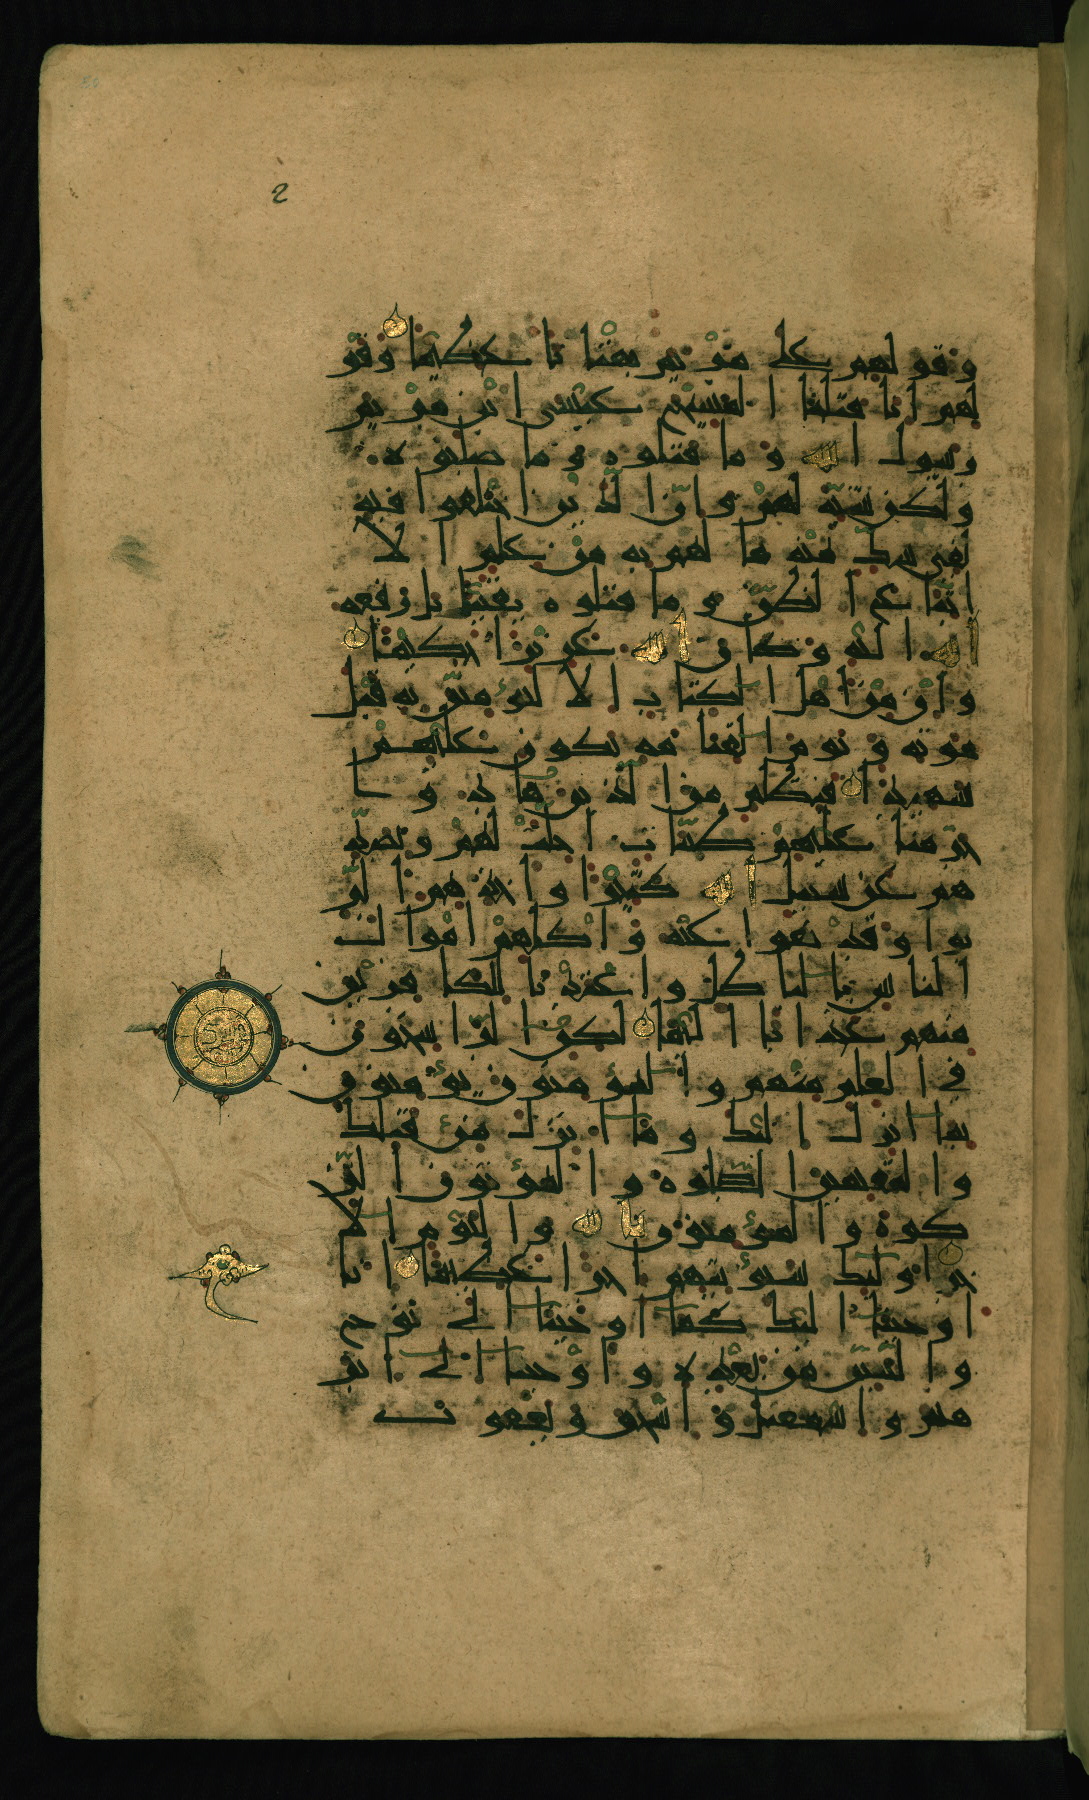 وقولهم على مريم بهتانا عظيما وقو
لهم انا قتلنا المسيح عيسى ابن مريم
رسول الله وما قتلوه وما صلبوه
ولكن شبه لهم وان الذين اختلفوا فيه
لفي شك منه ما لهم به من علم الا
اتباع الظن وما قتلوه يقينا بل رفعه
الله اليه وكان الله عزيزا حكيما
وان من اهل الكتاب الا ليؤمنن به قبل
موته ويوم القيامة يكون عليهم
شهيدا فبظلم من الذين هادوا
حرمنا عليهم طيبات احلت لهم وبصد
هم عن سبيل الله كثيرا واخذهم الر
بوا وقد نهوا عنه واكلهم اموال
الناس بالباطل واعتدنا للكافرين
منهم عذابا اليما لكن الراسخون
في العلم منهم والمؤمنون يؤمنون
بما انزل اليك وما انزل من قبلك
والمقيمين الصلوة والمؤتون الز
كوة والمؤمنون بالله واليوم الا
خر اولئك سنؤتيهم اجرا عظيما انا
اوحينا اليك كما اوحينا الى نوح
والنبين من بعده واوحينا الى ابر
هيم واسمعيل واسحق ويعقوب